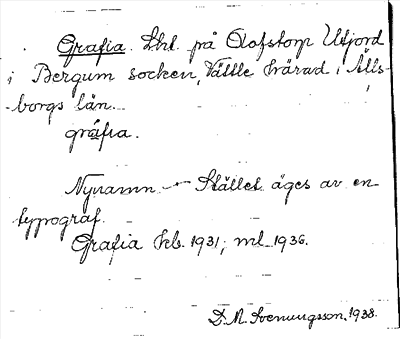 Grafia. Lht. på Olofstorp Utjord
i Bergum socken, Vättle härad i Älfs-
borgs län.
gráfia.
Nynamn. — Stället äges av en
typograf.
Grafia hb. 1931; ml 1936.
D. M. Svenungsson. 1938.